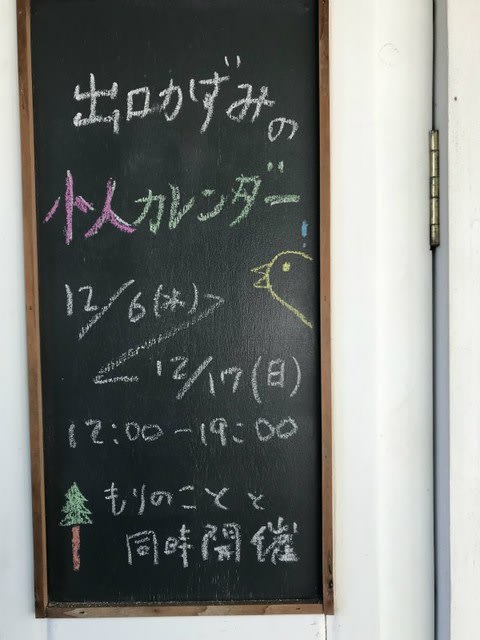 出口かずみの
小人カレンダー
12/6(水)
12/17(日)
12:00-19:00
もりのことと
同時開催